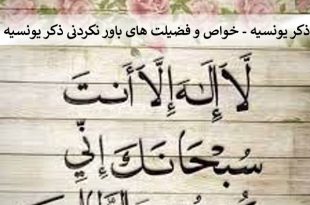 ذکر یونسیه - خواص و فضیلت های باور نکردنی ذکر یونسیه
لَّا إِلَٰهَ إِلَّا أَنتَ
سُبْحَانَكَ إِنِّي